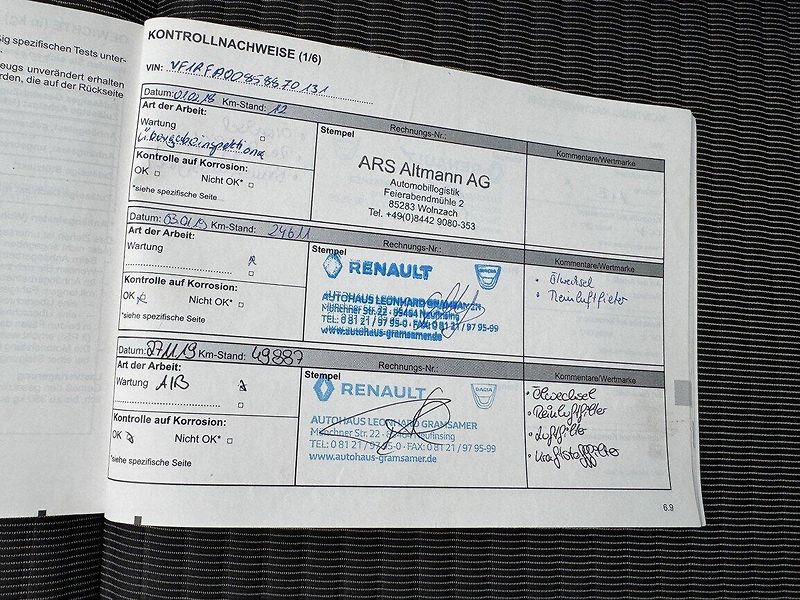 ßig spezifischen Tests unter-
eugs unverändert erhalten
rden, die auf der Rückseite
KONTROLLNACHWEISE (1/6)
VIN: VF1RFA00858870131
Datum: 01.02.18 Km-Stand: 12
Art der Arbeit:
Wartung
Übergabeinspektion
Kontrolle auf Korrosion:
OK Nicht OK*
*siehe spezifische Seite
Stempel Rechnungs-Nr.:
ARS Altmann AG
Automobillogistik
Feierabendmühle 2
85283 Wolnzach
Tel. +49(0)8442 9080-353
Kommentare/Wertmarke
Datum: 03.01.19 Km-Stand: 24611
Art der Arbeit:
Wartung
Kontrolle auf Korrosion:
OK Nicht OK*
*siehe spezifische Seite
Stempel Rechnungs-Nr.:
RENAULT DACIA
AUTOHAUS LEONHARD GRAMSAMER
Münchner Str. 22 · 85464 Neufinsing
TEL: 0 81 21 / 97 95-0 · FAX: 0 81 21 / 97 95-99
www.autohaus-gramsamer.de
Kommentare/Wertmarke
• Ölwechsel
• Reinluftfilter
Datum: 27.11.19 Km-Stand: 49887
Art der Arbeit:
Wartung A1B
Kontrolle auf Korrosion:
OK Nicht OK*
*siehe spezifische Seite
Stempel Rechnungs-Nr.:
RENAULT DACIA
AUTOHAUS LEONHARD GRAMSAMER
Münchner Str. 22 - 85464 Neufinsing
TEL: 0 81 21 / 97 95-0 · FAX: 0 81 21 / 97 95-99
www.autohaus-gramsamer.de
Kommentare/Wertmarke
• Ölwechsel
• Reinluftfilter
• Luftfilter
• Kraftstofffilter
6.9